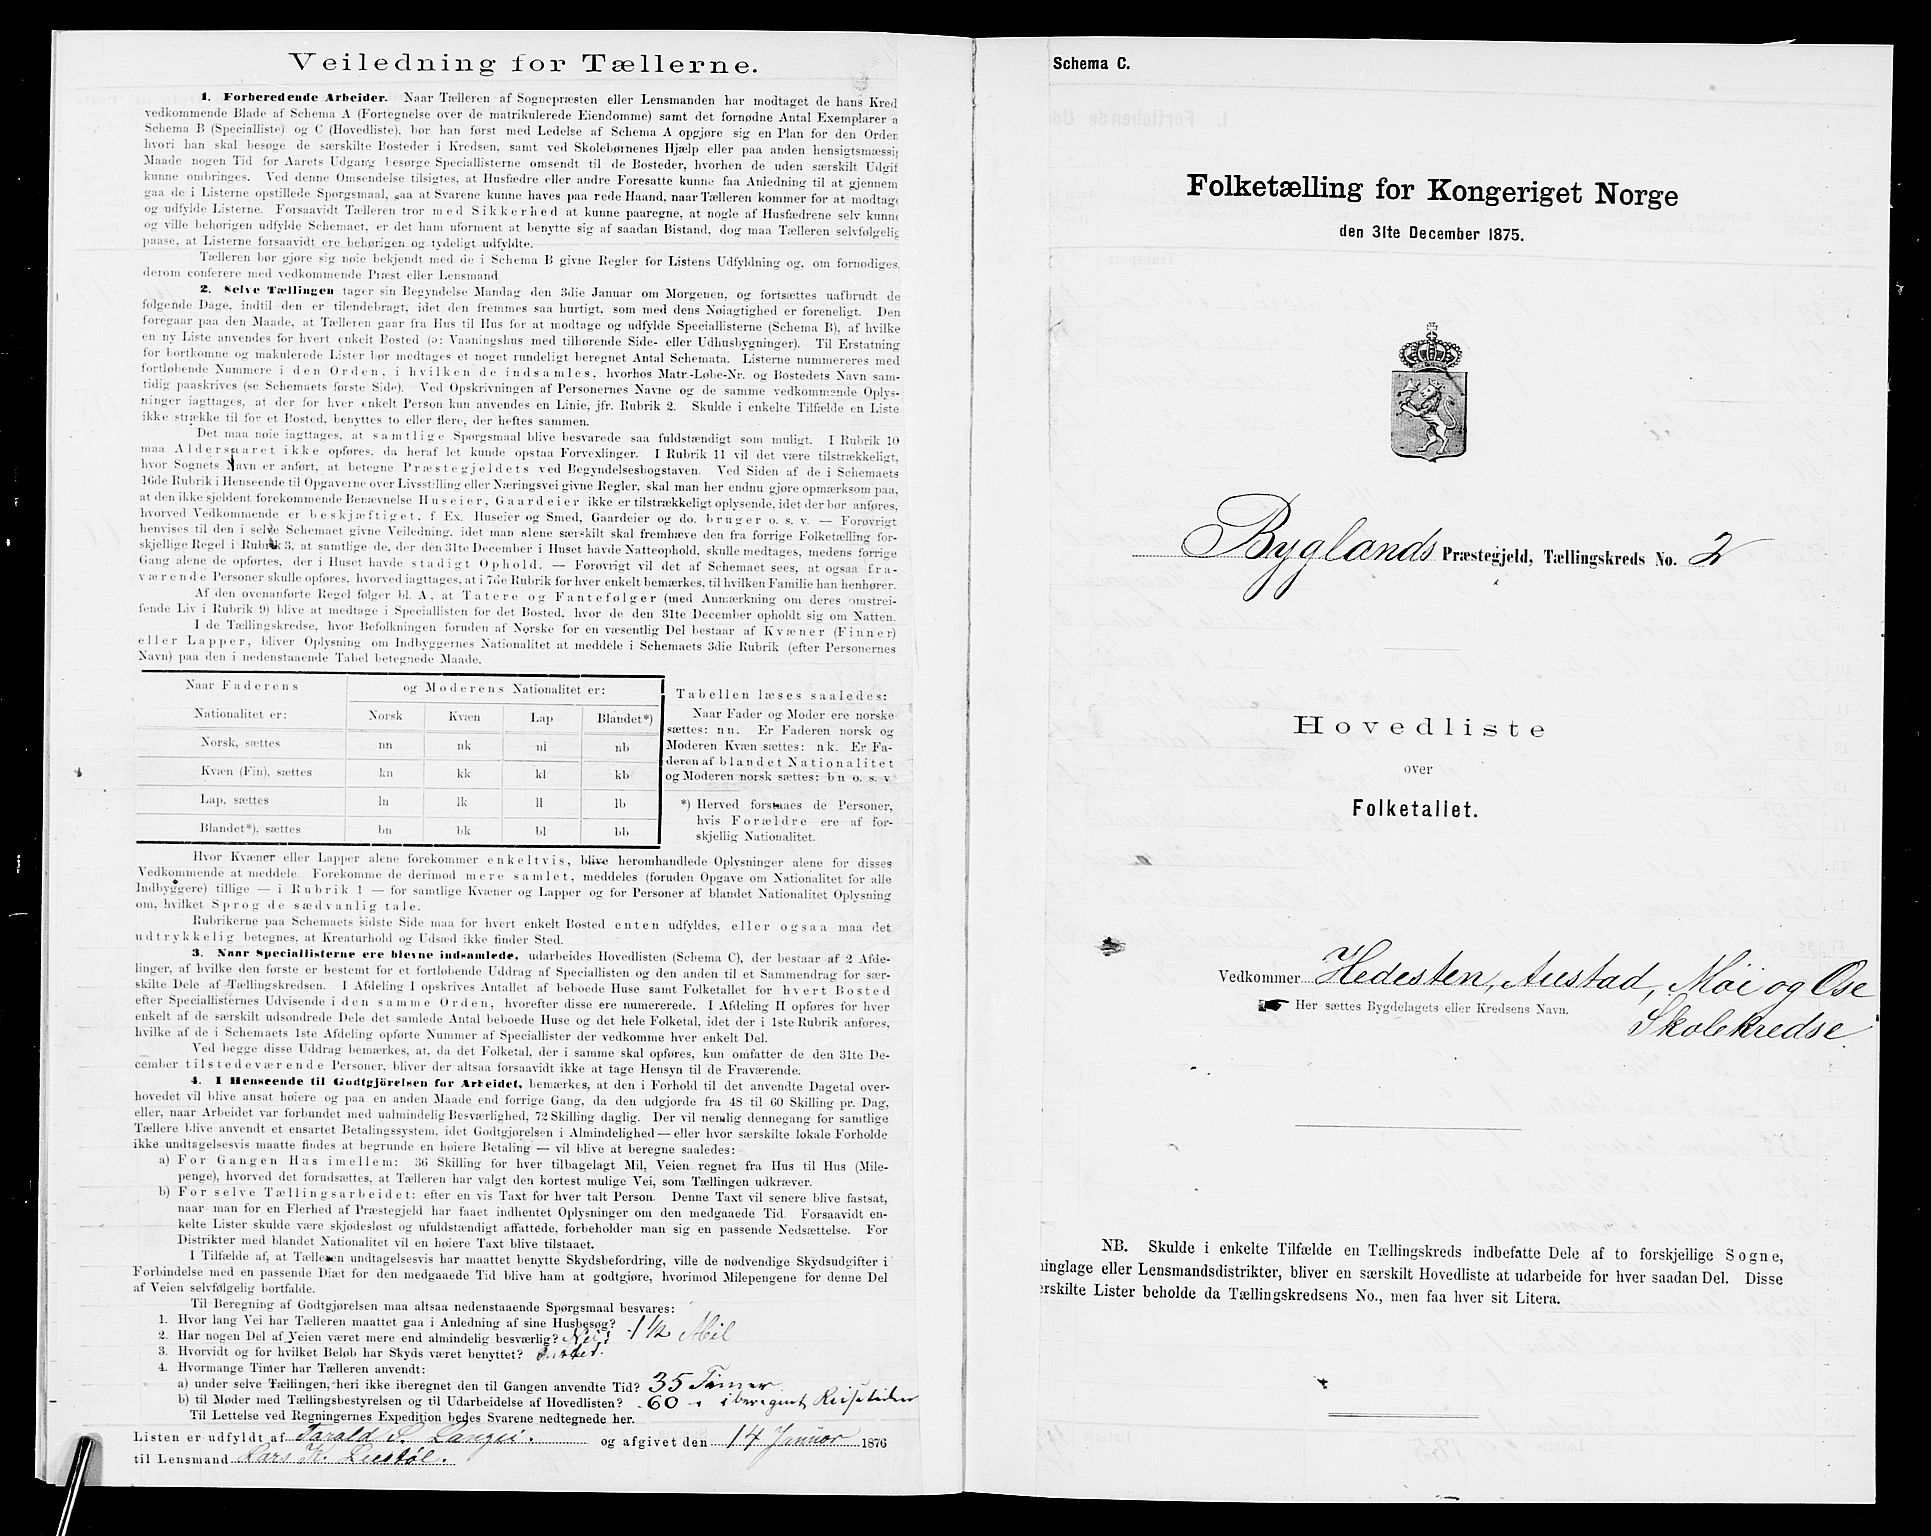 Veiledning for Tællerne.
1. Forberedende Arbeider. Naar Tælleren af Sognepræsten eller Lensmanden har modtaget de hans Kred
vedkommende Blade af Schema A (Fortegnelse over de matrikulerede Eiendomme) samt det fornødne Antal Exemplarer a
Schema B (Specialliste) og C (Hovedliste), bør han først med Ledelse af Schema A opgjøre sig en Plan for den Orden
hvori han skal besøge de særskilte Bosteder i Kredsen, samt ved Skolebørnenes Hjælp eller paa anden hensigtsmæssig
Maade nogen Tid før Aarets Udgang besørge Speciallisterne omsendt til de Bosteder, hvorhen de uden særskilt Udgif
kunne ombringes. Ved denne Omsendelse tilsigtes, at Husfædre eller andre Foresatte kunne faa Anledning til at gjennem
gaa de i Listerne opstillede Spørgsmaal, gaa at Svarene kunne haves paa rede Haand, naar Tælleren kommer for at modtage
og udfylde Listerne. Forsaavidt Tælleren tror med Sikkerhed at kunne paaregne, at nogle af Husfædrene selv kunne
og ville behørigen udfylde Schemaet, er det ham uforment at benytte sig af saadan Bistand, dog maa Tælleren selvfølgelig
paase, at Listerne forsaavidt ere behørigen og tydeligt udfyldte.
Tælleren bør gjøre sig nøie bekjendt med de i Schema B givne Regler for Listens Udfyldning og, om fornødiges,
derom conferere med vedkommende Præst eller Lensmand
2. Selve Tællingen tager sin Begyndelse Mandag den 3die Januar om Morgenen, og fortsættes uafbrudt de
følgende Dage, indtil den er tilendebragt, idet den fremmes saa hurtigt, som med dens Nøiagtighed er foreneligt. Den
foregaar paa den Maade, at Tælleren gaar fra Hus til Hus for at modtage og udfylde Speciallisterne (Schema B), af hvilke
en ny Liste anvendes for hvert enkelt Bosted (ɔ: Vaaningshus med tilhørende Side- eller Udhusbygninger). Til Erstatning
for bortkomne og makulerede Lister bør medtages et noget rundeligt beregnet Antal Schemata. Listerne nummereres med
fortløbende Nummere i den Orden, i hvilken de indsamles, hvorhos Matr.-Løbe-Nr. og Bostedets Navn sam-
tidig paaskrives (se Schemaets første Side). Ved Opskrivningen af Personernes Navne og de samme vedkommende Oplys-
ninger iagttages, at der for hver enkelt Person kun anvendes en Linie, jfr. Rubrik 2. Skulde i enkelte Tilfælde en Liste
ikke strække til for et Bosted, benyttes to eller flere, der heftes sammen.
Det maa nøie iagttages, at samtlige Spørgsmaal blive besvarede saa fuldstændigt som muligt. I Rubrik 10
maa Aldersaaret ikke opføres, da heraf let kunde opstaa Forvexlinger. I Rubrik 11 vil det være tilstrækkeligt,
hvor Sognets Navn er anført, at betegne Præstegjeldets ved Begyndelsesbogstaven. Ved Siden af de i Schemaets
16de Rubrik i Henseende til Opgaverne over Livsstilling eller Næringsvei givne Regler, skal man her endnu gjøre opmærksom paa,
at den ikke sjeldent forekommende Benævnelse Huseier, Gaardeier ikke er tilstrækkeligt oplysende, idet der bør anføres,
hvorved Vedkommende er beskjæftiget, f Ex. Huseier og Smed, Gaardeier og do. bruger o. s. v. — Forøvrigt
henvises til den i selve Schemaet givne Veiledning, idet man alene særskilt skal fremhæve den fra forrige Folketælling for-
skjellige Regel i Rubrik 3, at samtlige de, der den 31te December i Huset havde Natteophold, skulle medtages, medens forrige
Gang alene de opførtes, der i Huset havde stadigt Ophold. — Forøvrigt vil det af Schemaet sees, at ogsaa fra-
værende Personer skulle opføres, hvorved iagttages, at i 7de Rubrik for hver enkelt bemærkes, til hvilken Familie han henhører.
Af den ovenanførte Regel følger bl. A, at Tatere og Fantefølger (med Anmærkning om deres omstrei-
fende Liv i Rubrik 9) blive at medtage i Speciallisten for det Bosted, hvor de den 31te December opholdt sig om Natten.
I de Tællingskredse, hvor Befolkningen foruden af Norske for en væsentlig Del bestaar af Kvæner (Finner)
eller Lapper, bliver Oplysning om Indbyggernes Nationalitet at meddele i Schemaets 3die Rubrik (efter Personernes
Navn) paa den i nedenstaaende Tabel betegnede Maade.
Naar Faderens og Moderens Nationalitet er:
Nationalitet er: Norsk Kvæn Lap Blandet*)
Norsk, sættes nn nk nl nb
Kvæn (Fin), sættes kn kk kl kb
Lap, sættes ln lk ll lb
Blandet*), sættes bn bk bl bb
Tabellen læses saaledes:
Naar Fader og Moder ere norske
sættes: nn. Er Faderen norsk og
Moderen Kvæn sættes: nk. Er Fa-
deren af blandet Nationalitet
og Moderen norsk sættes: bn o. s. v
*) Herved forstaaes de Personer,
hvis Forældre ere af for-
skjellig Nationalitet.
Hvor Kvæner eller Lapper alene forekommer enkeltvis, blive heromhandlede Oplysninger alene for disses
Vedkommende at meddele. Forekomme de derimod mere samlet, meddeles (foruden Opgave om Nationalitet for alle
Indbyggere) tillige — i Rubrik 1 — for samtlige Kvæner og Lapper og for Personer af blandet Nationalitet Oplysning
om, hvilket Sprog de sædvanlig tale.
Rubrikerne paa Schemaets sidste Side maa for hvert enkelt Bosted enten udfyldes, eller ogsaa maa det
udtrykkelig betegnes, at Kreaturhold og Udsæd ikke finder Sted.
3. Naar Speciallisterne ere blevne indsamlede, udarbeides Hovedlisten (Schema C), der bestaar af 2 Afde-
linger, af hvilke den første er bestemt for et fortløbende Uddrag af Speciallisten og den anden til et Sammendrag for sær-
skilte Dele af Tællingskredsen. I Afdeling I opskrives Antallet af beboede Huse samt Folketallet for hvert Bosted
efter Speciallisternes Udvisende i den samme Orden, hvorefter disse ere numererede. I Afdeling II opføres for hver
enkelt af de særskilt udsondrede Dele det samlede Antal beboede Huse og det hele Folketal, idet der i 1ste Rubrik anføres,
hvilke af de i Schemaets 1ste Afdeling opførte Nummer af Speciallister der vedkomme hver enkelt Del.
Ved begge disse Uddrag bemærkes, at, da det Folketal, der i samme skal opføres, kun omfatter de den 31te De-
cember tilstedeværende Personer, bliver der altsaa forsaavidt ikke at tage Hensyn til de Fraværende.
4. I Henseende til Godtgjörelsen for Arbeidet, bemærkes, at den i Forhold til det anvendte Dagetal over-
hovedet vil blive ansat høiere og paa en anden Maade end forrige Gang, da den udgjorde fra 48 til 60 Skilling pr. Dag,
eller, naar Arbeidet var forbundet med ualmindelig Besværlighed, 72 Skilling daglig. Der vil nemlig dennegang for samtlige
Tællere blive anvendt et ensartet Betalingssystem, idet Godtgjørelsen i Almindelighed — eller hvor særskilte lokale Forholde
ikke undtagelsesvis maatte findes at begrunde en høiere Betaling — vil blive at beregne saaledes:
a) For Gangen Hus imellem: 36 Skilling for hver tilbagelagt Mil, Veien regnet fra Hus til Hus (Mile-
penge), hvorved det forudsættes, at Tælleren har valgt den kortest mulige Vei, som Tællingen udkræver.
b) For selve Tællingsarbeidet: efter en vis Taxt for hver talt Person. Denne Taxt vil senere blive fastsat,
naar man for en Flerhed af Præstegjeld har faaet indhentet Oplysninger om den medgaaede Tid. Forsaavidt en-
kelte Lister skulde være skjødesløst og ufuldstændigt affattede, forbeholder man sig en passende Nedsættelse. For
Distrikter med blandet Nationalitet vil en høiere Taxt blive tilstaaet.
I Tilfælde af, at Tælleren undtagelsesvis har maattet benytte Skydsbefordring, ville de nødvendige Skydsudgifter i
Forbindelse med en passende Diæt for den medgaaede Tid blive ham at godtgjøre, hvorimod Milepengene for denne Del
af Veien selvfølgelig bortfalde.
Til Beregning af Godtgjørelsen maa altsaa nedenstaaende Spørgsmaal besvares:
1. Hvor lang Vei har Tælleren maattet gaa i Anledning af sine Husbesøg? 1 1/2 Mil
2. Har nogen Del af Veien været mere end almindelig besværlig? Nei!
3. Hvorvidt og for hvilket Beløb har Skyds været benyttet?
4. Hvormange Timer har Tælleren anvendt:
a) under selve Tællingen, heri ikke iberegnet den til Gangen anvendte Tid? 35 Timer
b) til Møder med Tællingsbestyrelsen og til Udarbeidelse af Hovedlisten? 60 - iberegnet Reisetiden
Til Lettelse ved Regningernes Expedition bedes Svarene nedtegnede her.
Listen er udfyldt af Tarald S. Langei. og afgivet den 14 Januar 1876
til Lensmand Lars K. Liestøl.
Schema C.
Folketælling for Kongeriget Norge
den 31te December 1875.
Byglands Præstegjeld, Tællingskreds No. 2
Hovedliste
over
Folketallet.
Vedkommer Hedesten, Austad, Moi og Ose
Her sættes Bygdelagets eller Kredsens Navn.
Skolekredse
NB. Skulde i enkelte Tilfælde en Tællingskreds indbefatte Dele af to forskjellige Sogne,
hinglage eller Lensmandsdistrikter, bliver en særskilt Hovedliste at udarbeide for hver saadan Del. Disse
ærskilte Lister beholde da Tællingskredsens No., men faa hver sit Litera.